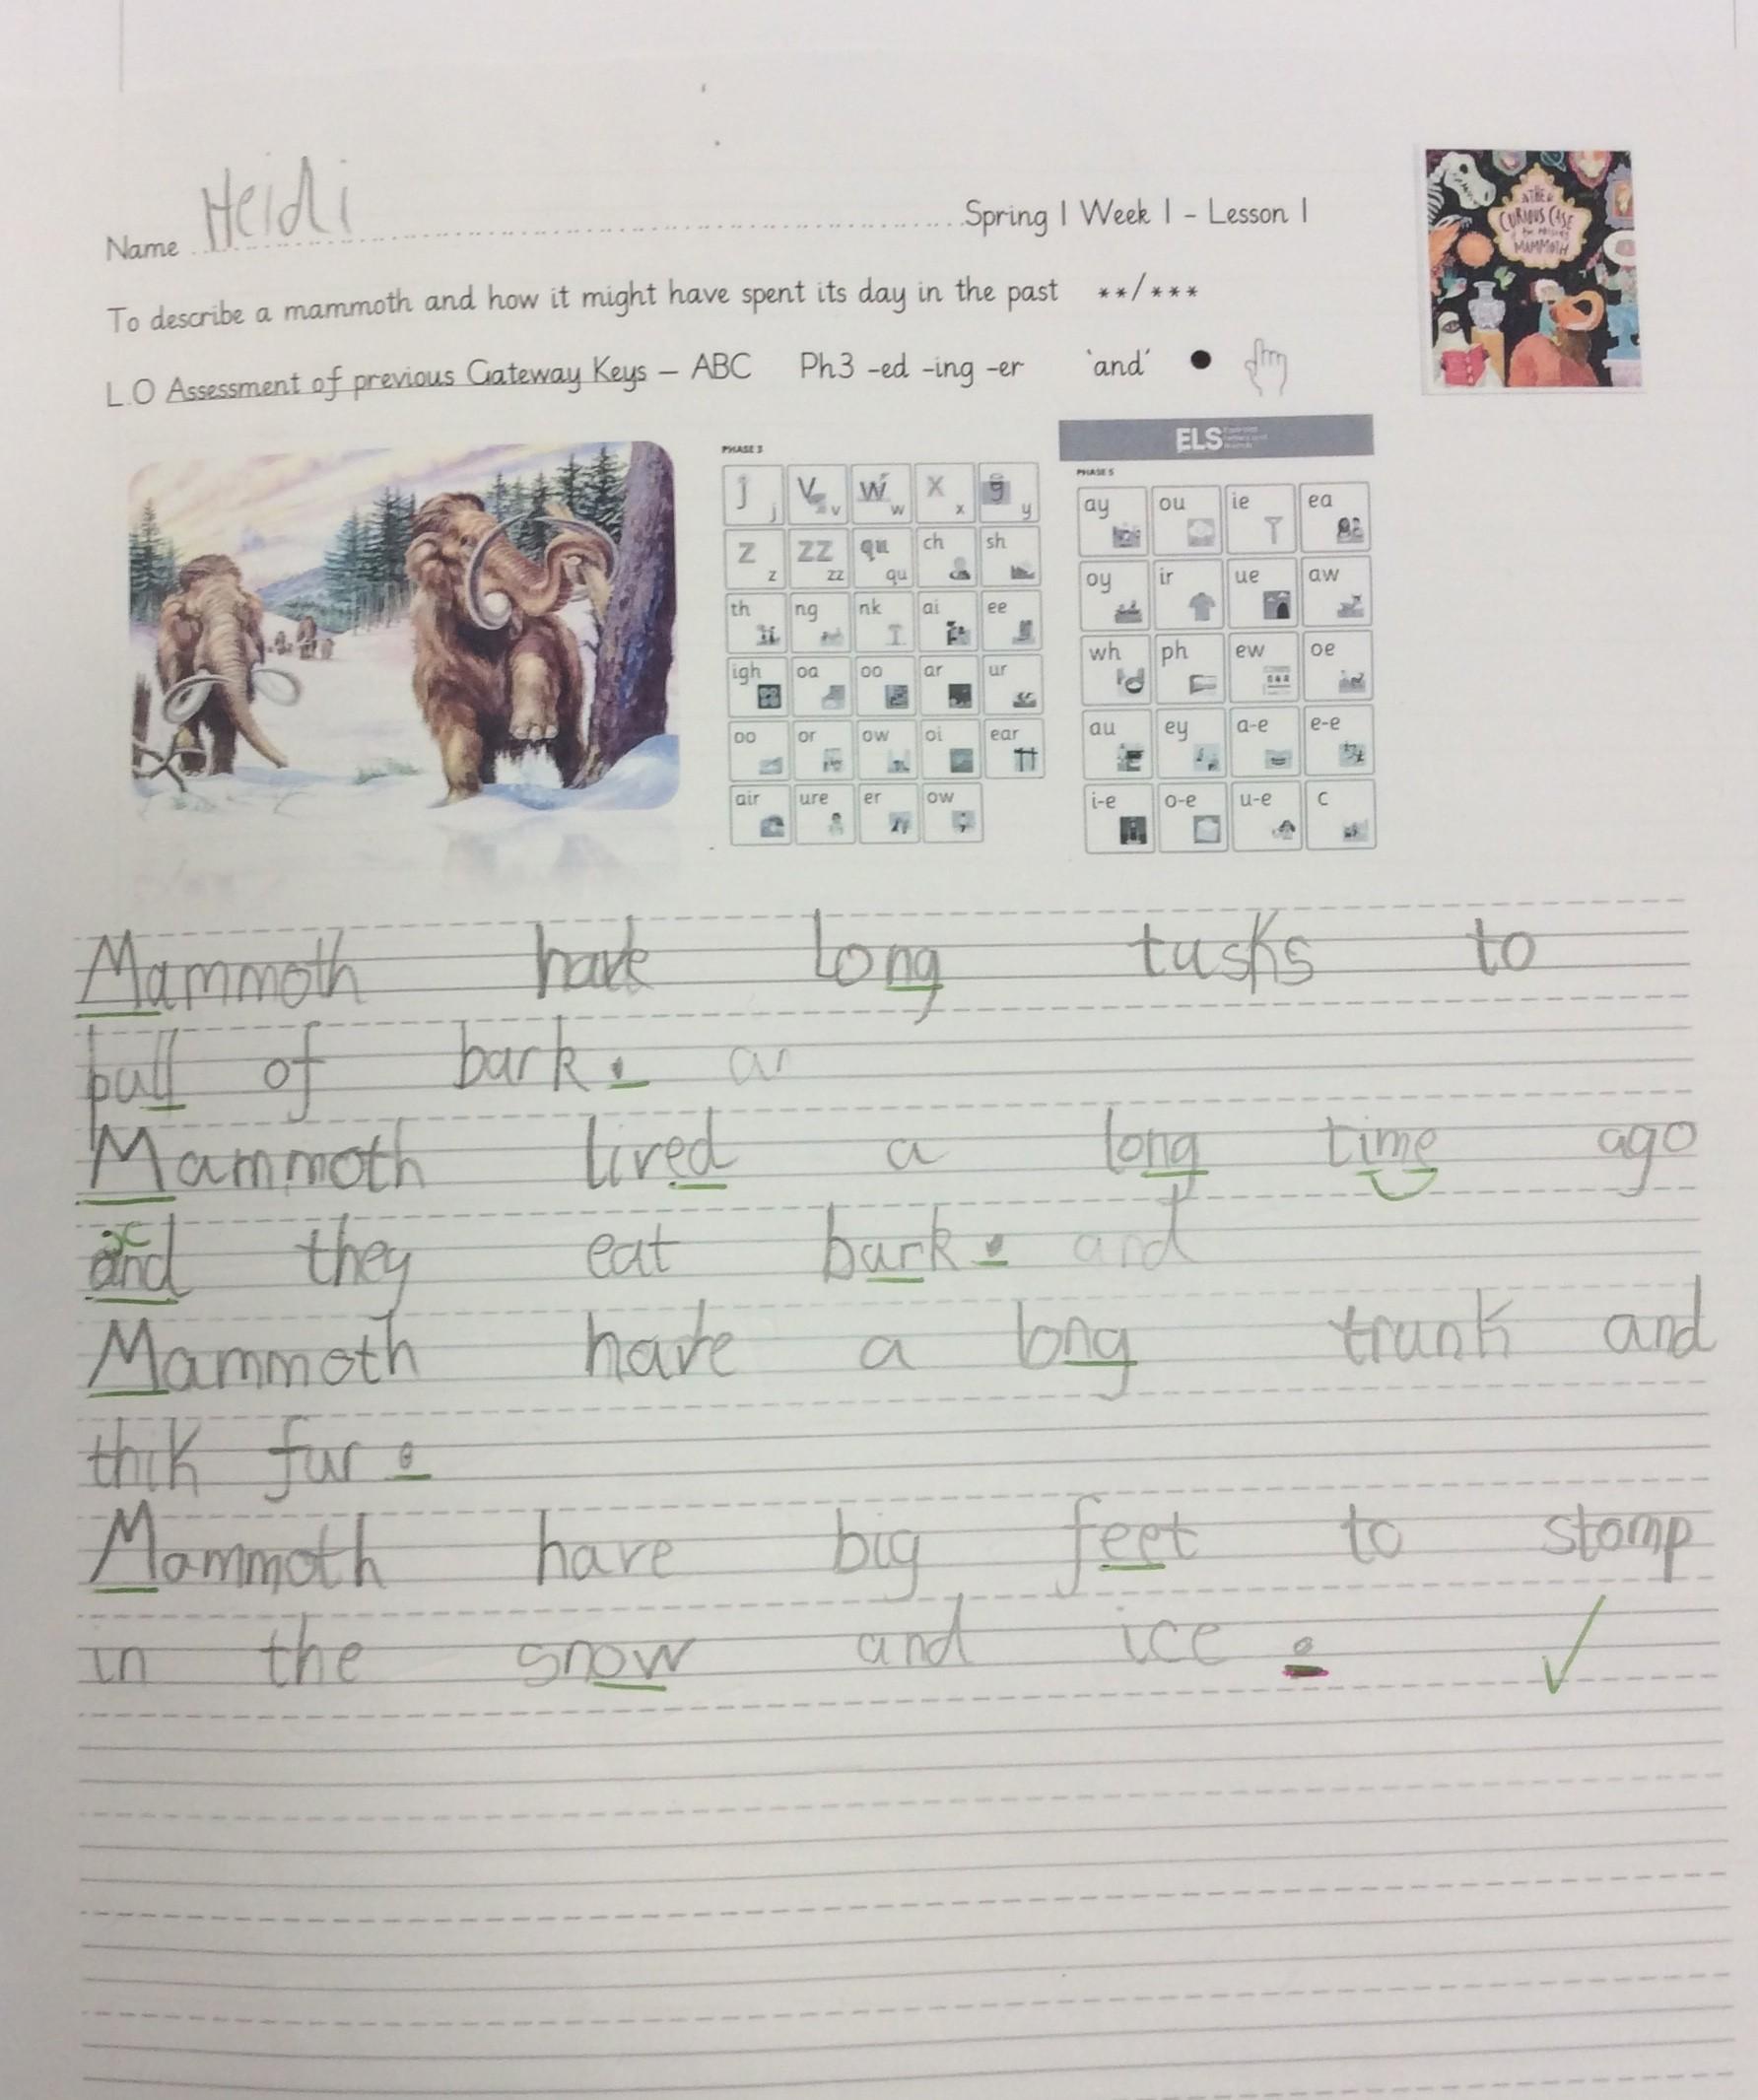 Name Heidi Spring 1 Week 1 - Lesson 1
To describe a mammoth and how it might have spent its day in the past **/***
L.O Assessment of previous Gateway Keys – ABC Ph3 -ed -ing -er 'and' ●
THE CURIOUS CASE
of the MISSING
MAMMOTH
PHASE 3
j j v v w w x x y y
z z zz zz qu qu ch sh
th ng nk ai ee
igh oa oo ar ur
oo or ow oi ear
air ure er ow
ELS
PHASE 5
ay ou ie ea
oy ir ue aw
wh ph ew oe
au ey a-e e-e
i-e o-e u-e c
Mammoth have long tusks to
pull of bark. ar
Mammoth lived a long time ago
and they eat bark. and
Mammoth have a long trunk and
thik fur.
Mammoth have big feet to stomp
in the snow and ice.